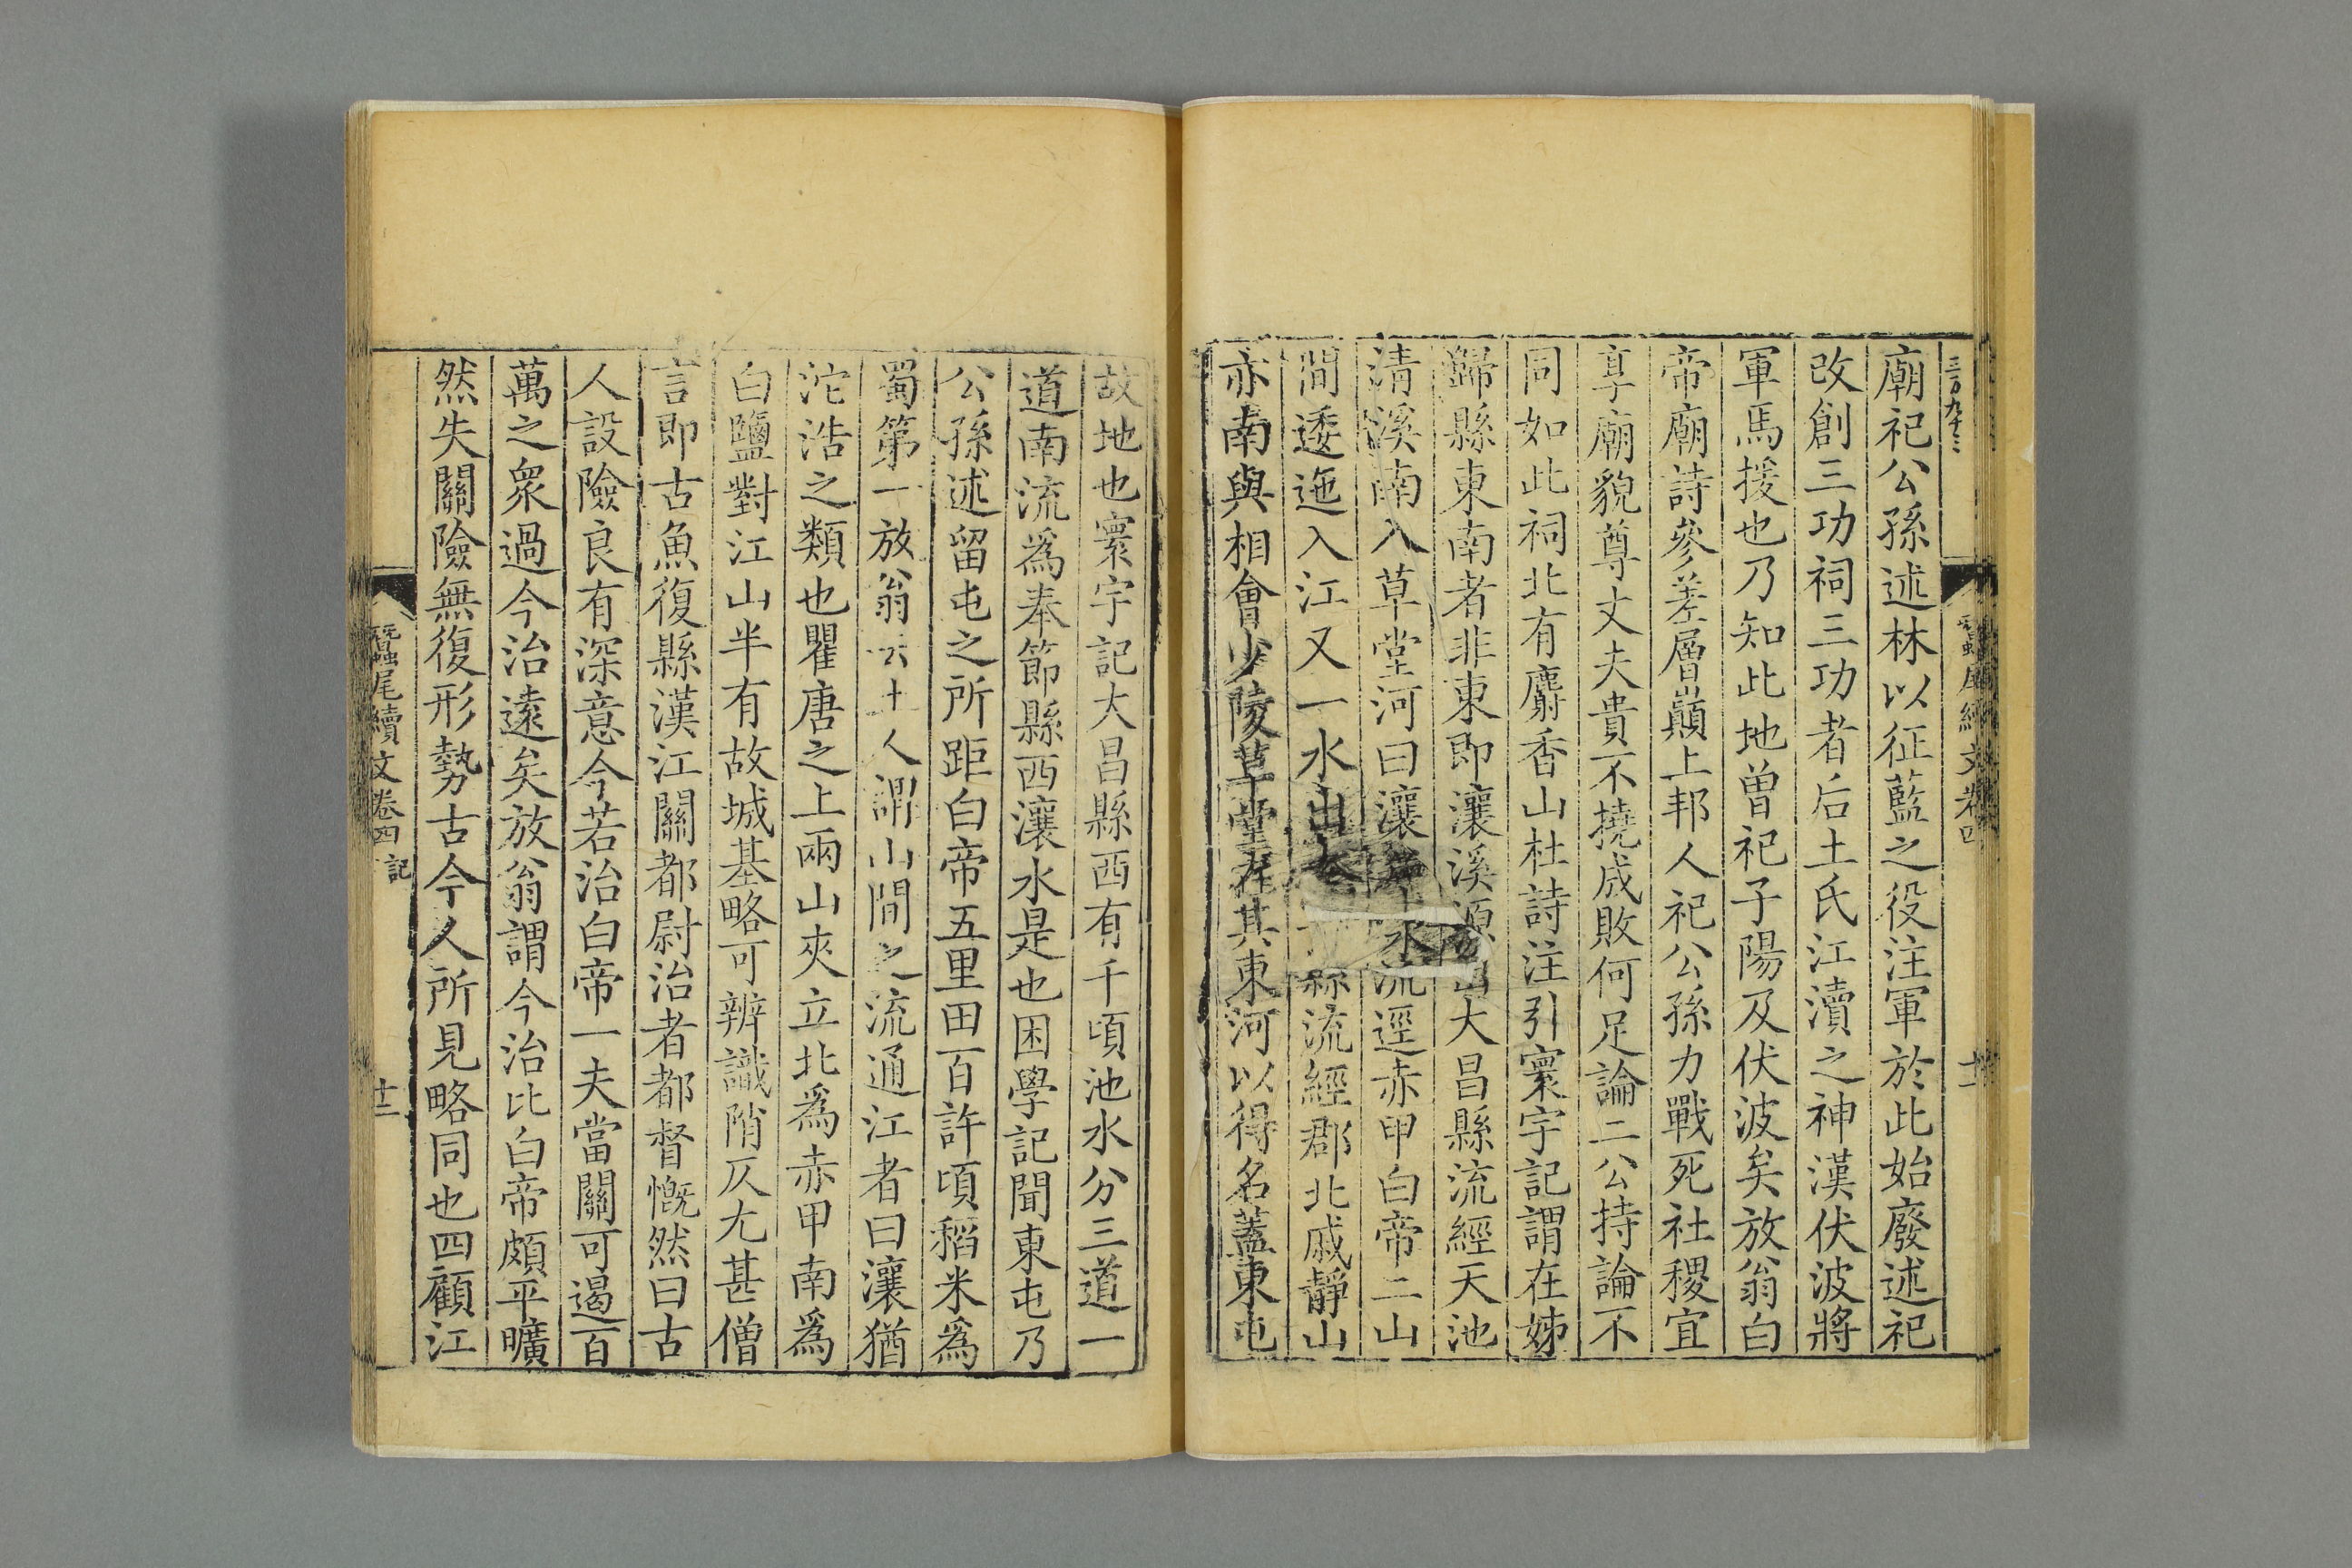 廟祀公孫述林以征藍之役注軍於此始廢述祀
改創三功祠三功者后土氏江瀆之神漢伏波將
軍馬援也乃知此地曾祀子陽及伏波矣放翁白
帝廟詩參差層巔上邦人祀公孫力戰死社稷宜
享廟貌尊丈夫貴不撓成敗何足論二公持論不
同如此祠北有麝香山杜詩注引寰宇記謂在姊
歸縣東南者非東即瀼溪源出大昌縣流經天池
清溪南入草堂河曰瀼水流逕赤甲白帝二山
間逶迤入江又一水出縣流經郡北戚靜山
亦南與相會少陵草堂在其東河以得名蓋東屯
故地也寰宇記大昌縣西有千頃池水分三道一
道南流為奉節縣西瀼水是也困學記聞東屯乃
公孫述留屯之所距白帝五里田百許頃稻米為
蜀第一放翁云土人謂山間之流通江者曰瀼猶
沱浩之類也瞿唐之上兩山夾立北為赤甲南為
白鹽對江山半有故城基略可辨識陗仄尤甚僧
言即古魚復縣漢江關都尉治者都督慨然曰古
人設險良有深意今若治白帝一夫當關可遏百
萬之眾過今治遠矣放翁謂今治比白帝頗平曠
然失關險無復形勢古今人所見略同也四顧江
蠶尾續文卷四 記
十二